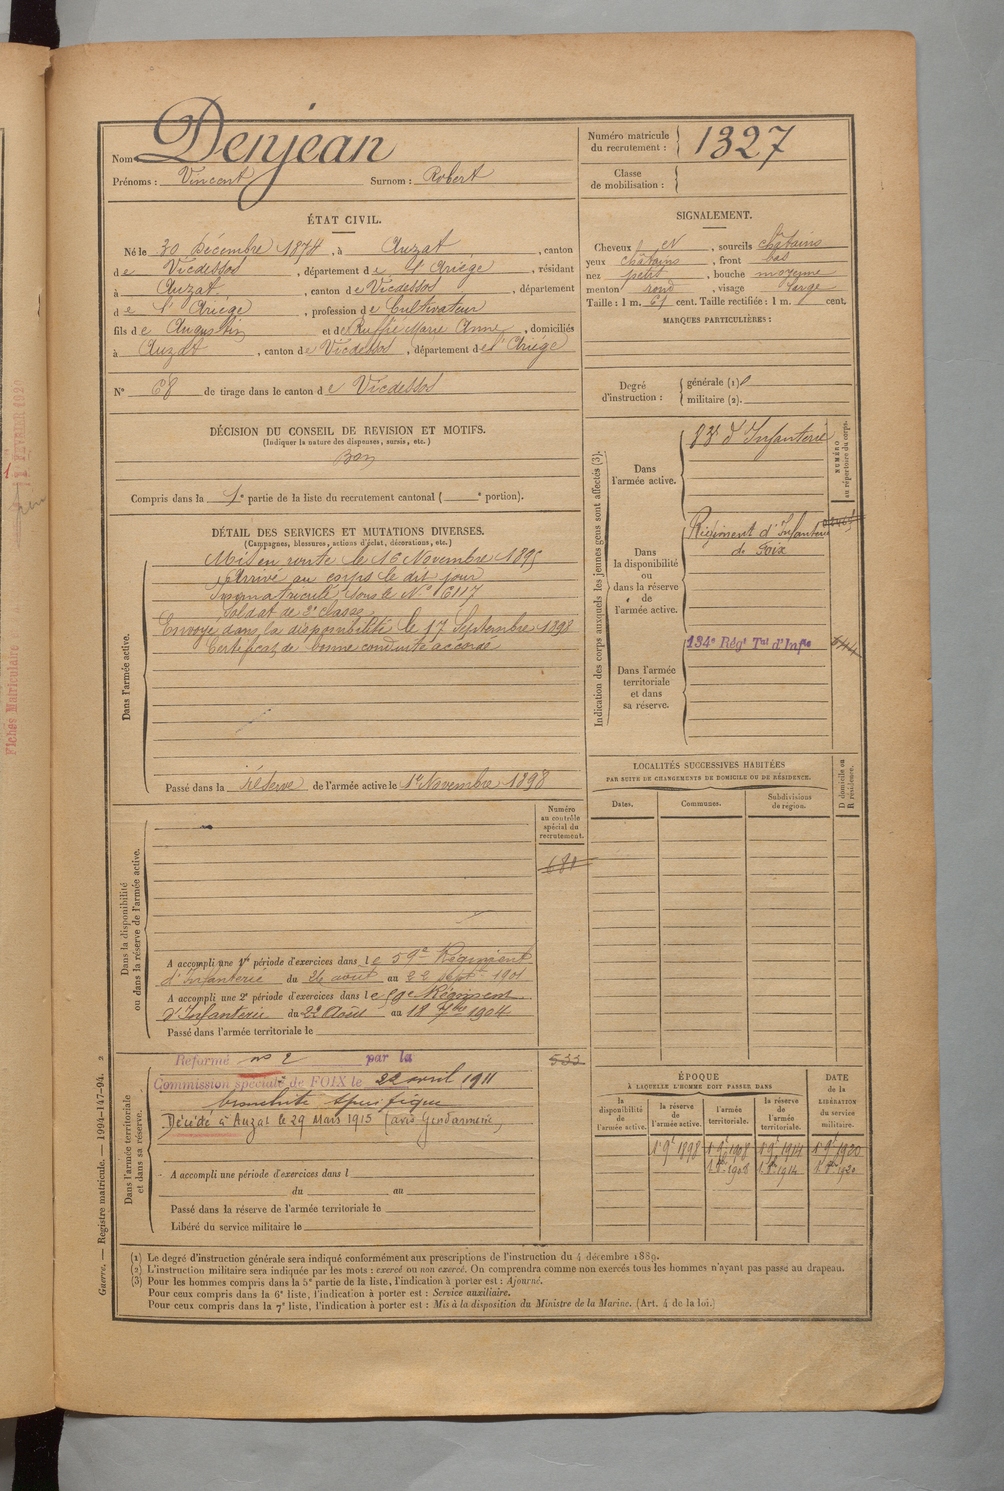 Nom Denjean
Prénoms : Vincent Surnom : Robert
Numéro matricule du recrutement : 1327
Classe de mobilisation :
ÉTAT CIVIL.
Né le 30 Décembre 1874, à Auzat, canton
de Vicdessos, département de l'Ariège, résidant
à Auzat, canton de Vicdessos, département
de l'Ariège, profession de Cultivateur
fils de Augustin et de Ruffié Marie Anne, domiciliés
à Auzat, canton de Vicdessos, département de l'Ariège
N° 68 de tirage dans le canton de Vicdessos
SIGNALEMENT.
Cheveux N, sourcils châtains
yeux châtains, front bas
nez petit, bouche moyenne
menton rond, visage large
Taille : 1 m. 61 cent. Taille rectifiée : 1 m. cent.
MARQUES PARTICULIÈRES :
Degré d'instruction :
générale (1)
militaire (2).
DÉCISION DU CONSEIL DE REVISION ET MOTIFS.
(Indiquer la nature des dispenses, sursis, etc.)
Bon
Compris dans la 1e partie de la liste du recrutement cantonal ( e portion).
DÉTAIL DES SERVICES ET MUTATIONS DIVERSES.
(Campagnes, blessures, actions d'éclat, décorations, etc.)
Dans l'armée active.
Mis en route le 16 Novembre 1895
Arrivé au corps le dit jour
Immatriculé sous le N° 6117
Soldat de 2e classe
Envoyé dans la disponibilité le 17 Septembre 1898
Certificat de bonne conduite accordé
Passé dans la réserve de l'armée active le 1er Novembre 1898
Indication des corps auxquels les jeunes gens sont affectés (3).
NUMÉRO au répertoire du corps.
Dans l'armée active.
83e d'Infanterie
Dans la disponibilité ou dans la réserve de l'armée active.
Régiment d'Infanterie
de Foix
Dans l'armée territoriale et dans sa réserve.
134e Régt Tal d'Infie
LOCALITÉS SUCCESSIVES HABITÉES
PAR SUITE DE CHANGEMENTS DE DOMICILE OU DE RÉSIDENCE.
Dates. Communes. Subdivisions de région.
D domicile ou R résidence.
Numéro au contrôle spécial du recrutement.
681
Dans la disponibilité ou dans la réserve de l'armée active.
A accompli une 1re période d'exercices dans le 59e Régiment
d'Infanterie du 26 août au 22 septbre 1901
A accompli une 2e période d'exercices dans le 59e Régiment
d'Infanterie du 22 Août au 18 7bre 1904
Passé dans l'armée territoriale le
533
Dans l'armée territoriale et dans sa réserve.
Réformé no 2 par la
Commission spéciale de FOIX le 22 avril 1911
bronchite spécifique
Décédé à Auzat le 29 Mars 1915 (avis Gendarmerie)
A accompli une période d'exercices dans l
du au
Passé dans la réserve de l'armée territoriale le
Libéré du service militaire le
ÉPOQUE
À LAQUELLE L'HOMME DOIT PASSER DANS
la disponibilité de l'armée active.
la réserve de l'armée active.
l'armée territoriale.
la réserve de l'armée territoriale.
DATE de la LIBÉRATION du service militaire.
(1) Le degré d'instruction générale sera indiqué conformément aux prescriptions de l'instruction du 4 décembre 1889.
(2) L'instruction militaire sera indiquée par les mots : exercé ou non exercé. On comprendra comme non exercés tous les hommes n'ayant pas passé au drapeau.
(3) Pour les hommes compris dans la 5e partie de la liste, l'indication à porter est : Ajourné.
Pour ceux compris dans la 6e liste, l'indication à porter est : Service auxiliaire.
Pour ceux compris dans la 7e liste, l'indication à porter est : Mis à la disposition du Ministre de la Marine. (Art. 4 de la loi.)
Guerre. — Registre matricule. — 1994-147-94. 2
Fiches Matriculaire